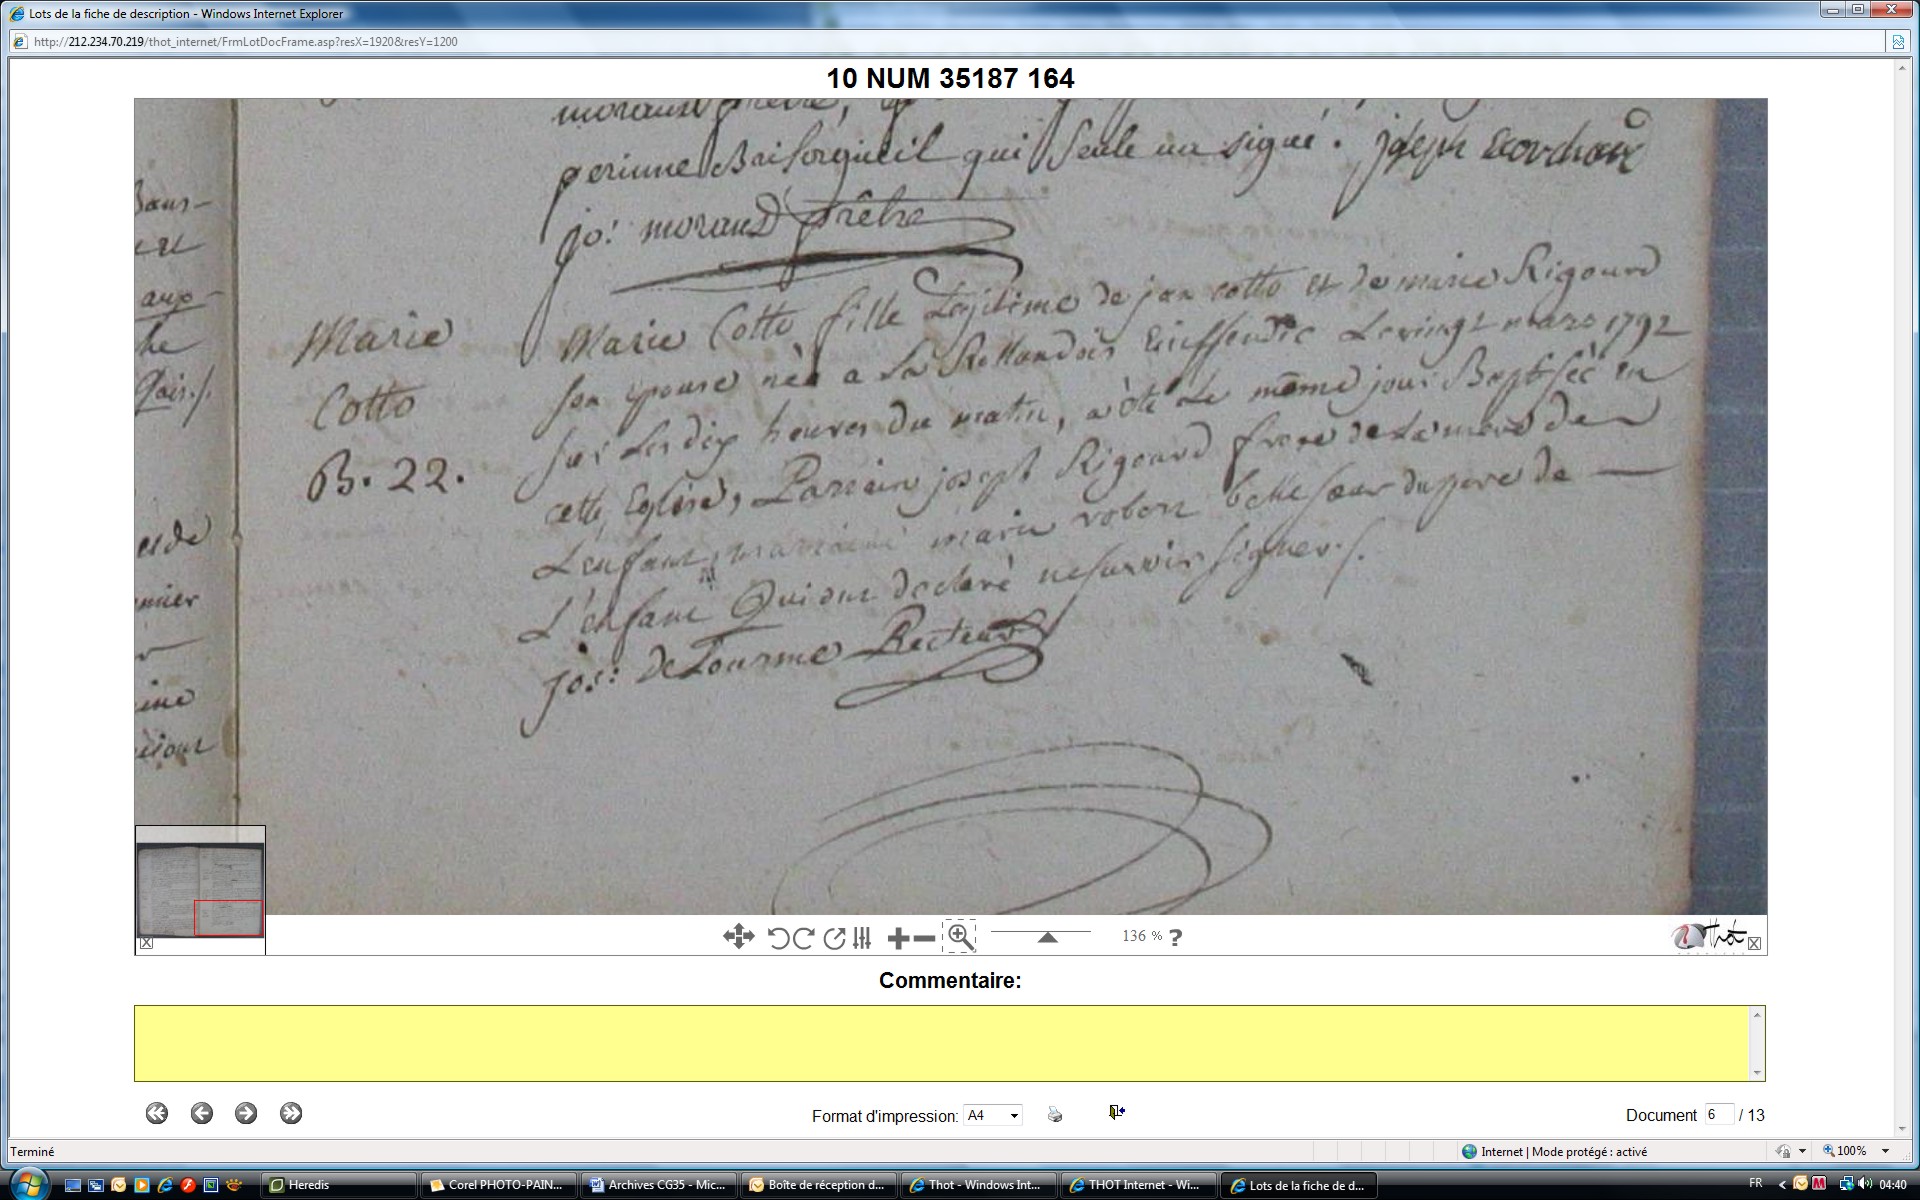 Lots de la fiche de description - Windows Internet Explorer
http://212.234.70.219/thot_internet/FrmLotDocFrame.asp?resX=1920&resY=1200
10 NUM 35187 164
qui seule un signé. joseph
jo: moraud prêtre
Marie
Cotto
B. 22.
Marie Cotto fille Legitime de jan cotto et de marie Rigourd
son epouse née a La Rollandais Eniffendic Le vingt mars 1792
sur Les dix heures du matin, a èté Le même jour Baptiséé en
cette Eglise, Parain joseph Rigourd frere de La mere de
L'enfant, maraine marie robert belle sœur du pere de —
L'enfant Qui ont declaré ne savoir signer./.
jos: de Tourme Recteur
136 % ?
Thot
Commentaire:
Format d'impression: A4
Document 6 / 13
Terminé
Internet | Mode protégé : activé
100%
Heredis
Corel PHOTO-PAIN...
Archives CG35 - Mic...
Boîte de réception d...
Thot - Windows Int...
THOT Internet - Wi...
Lots de la fiche de d...
FR
04:40